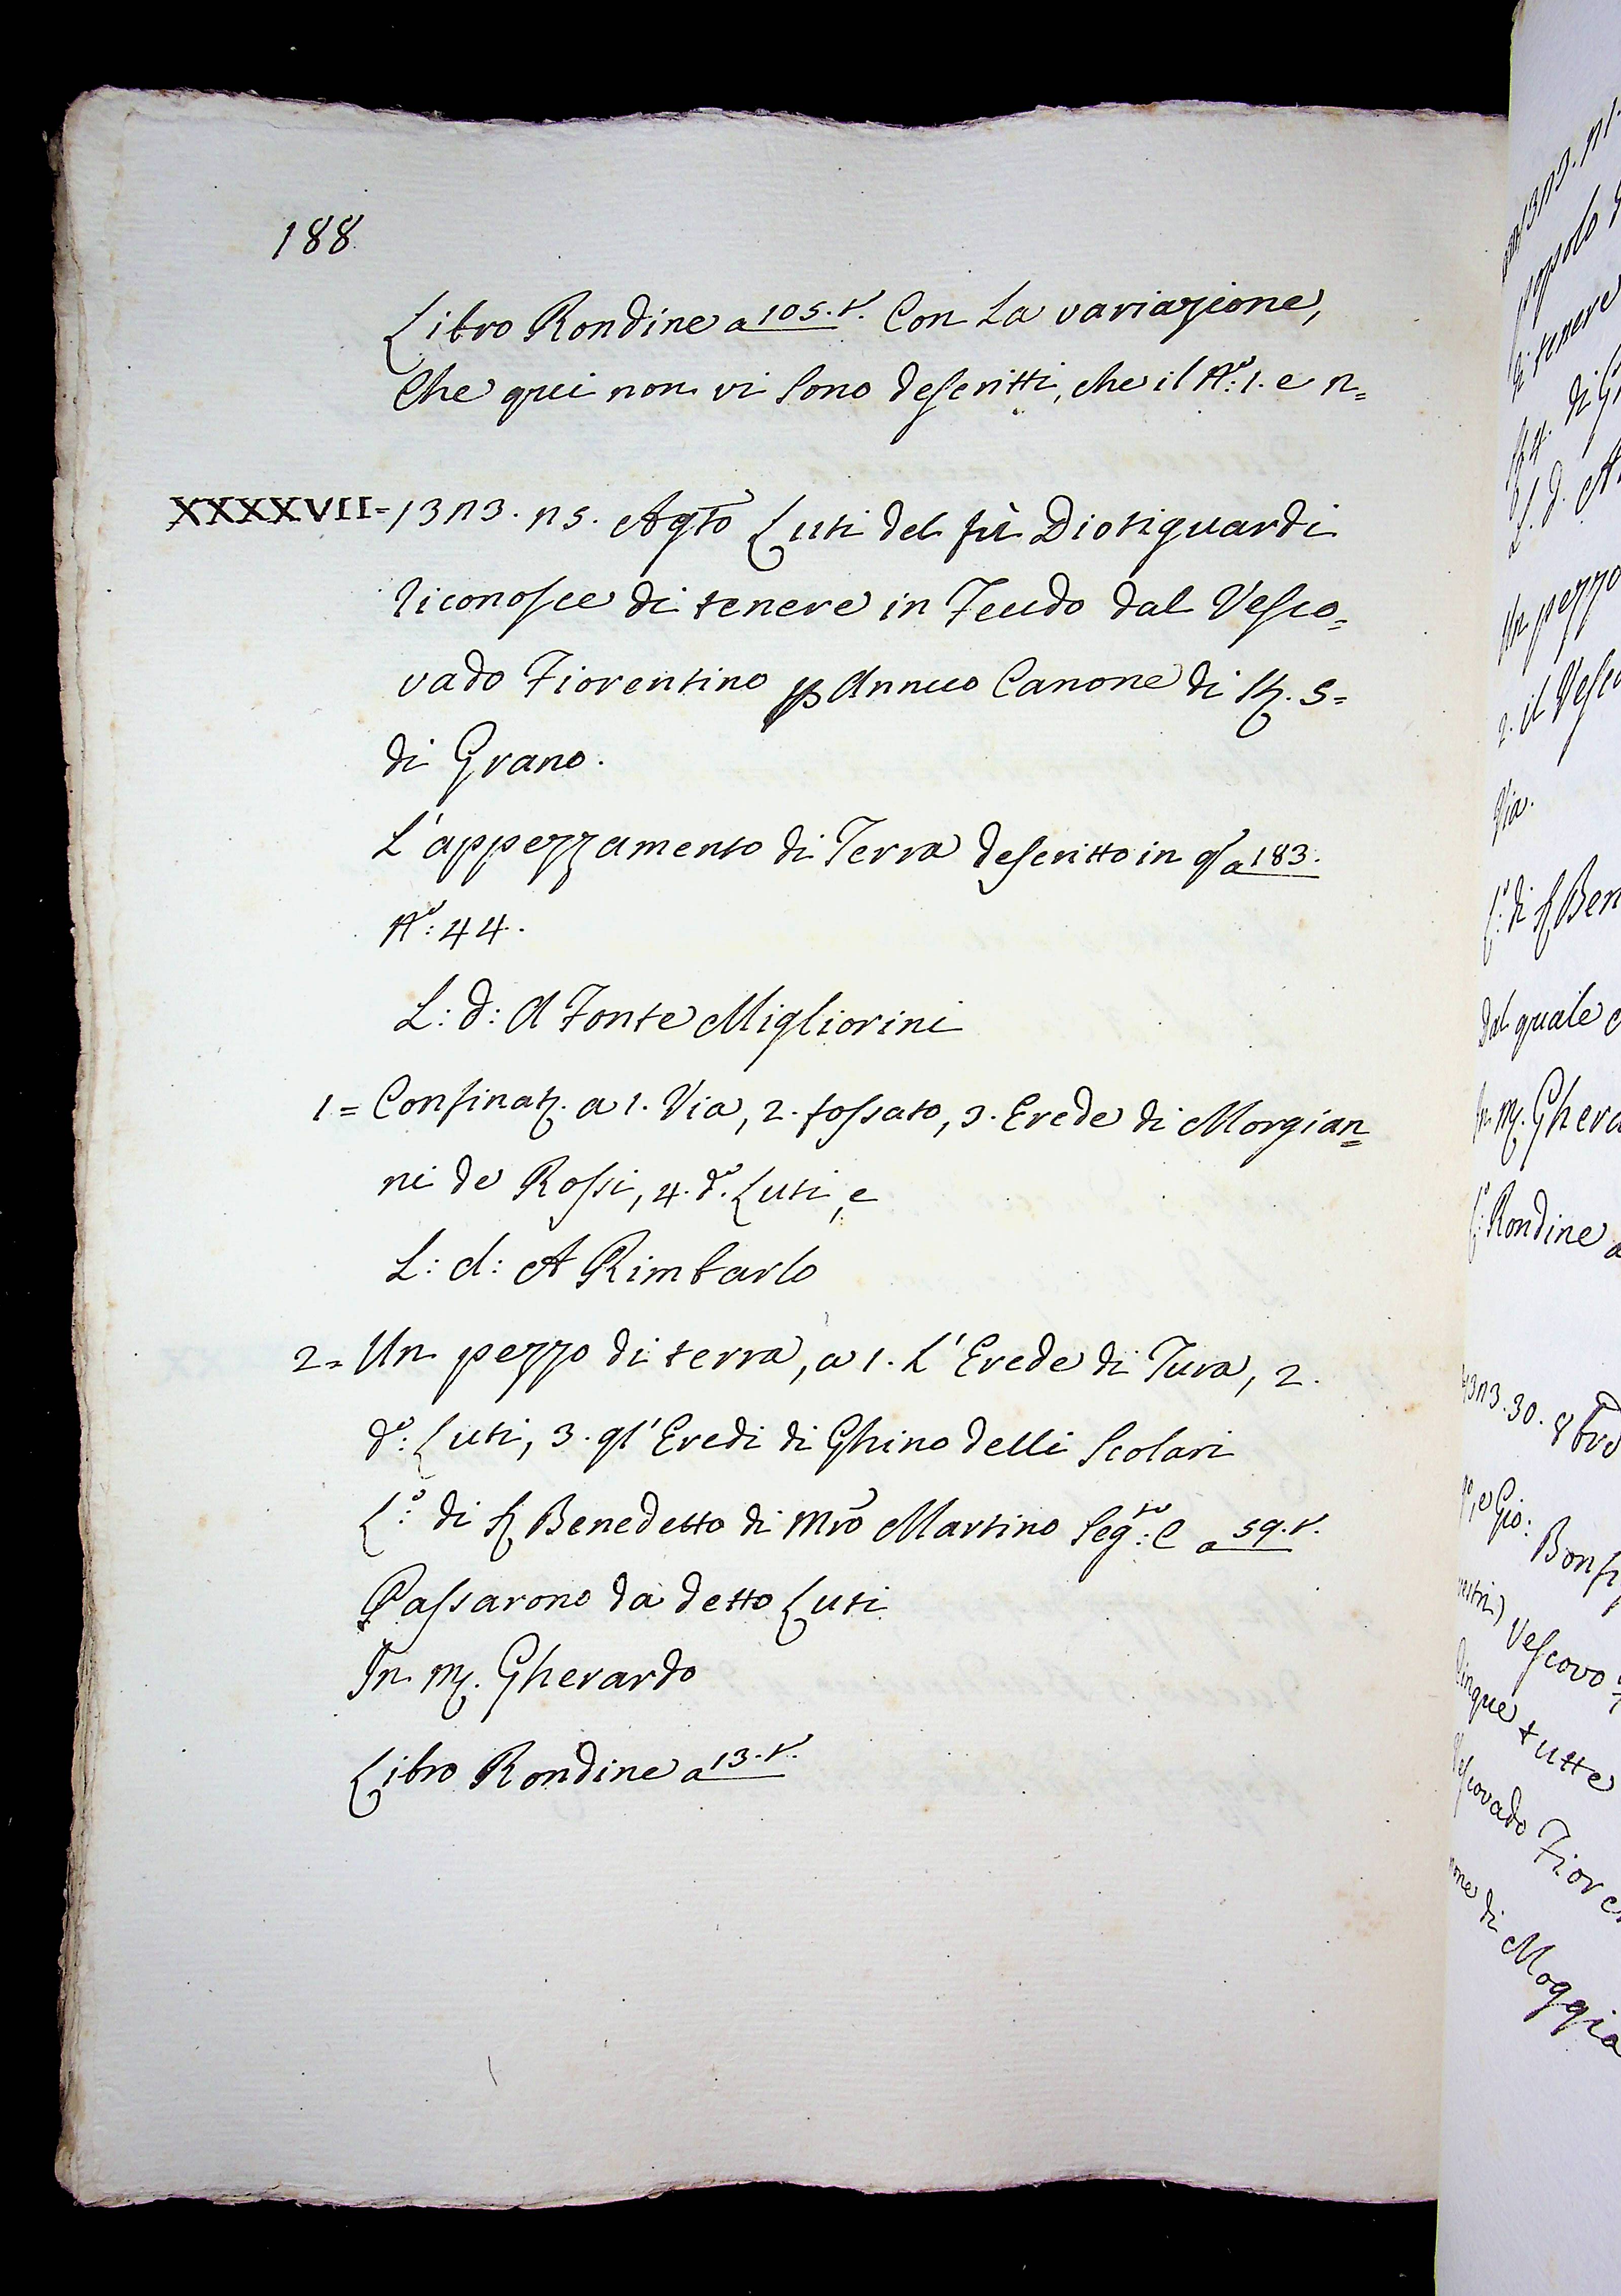 188
Libro Rondine a 105. v. Con La variazione,
Che qui non vi sono descritti, che il N.º: 1. e n=
XXXXVII= 13n3. n5. Agto Luti del fù Diotiguardi
riconosce di tenere in Feudo dal Vesco=
vado Fiorentino p Annuo Canone di St. 5=
di Grano.
L'appezzamento di Terra descritto in qº a 183.
Nº: 44.
L: d: A Fonte Migliorini
1= Confinatº. a 1. Via, 2. fossato, 3. Erede di Morgian=
ni de Rossi, 4. dº. Luti, e
L: d: A Rimbarlo
2= Un pezzo di terra, a 1. L'Erede di Tura, 2.
dº: Luti, 3. gl'Eredi di Ghino delli Scolari
Lº: di S Benedetto di Mrõ Martino Segto: C a 59. v.
Passarono da detto Luti
In M. Gherardo
Libro Rondine a 13. v.
Un pezzo
2. il Vesco
Via.
Lº: di S Ben
Dal quale
In M. Ghera
Lº: Rondine a
13n3. 30. 8bre
e Gio: Bonfi
Vescovo
cinque tutte
Vescovado Fiore
none di Moggia